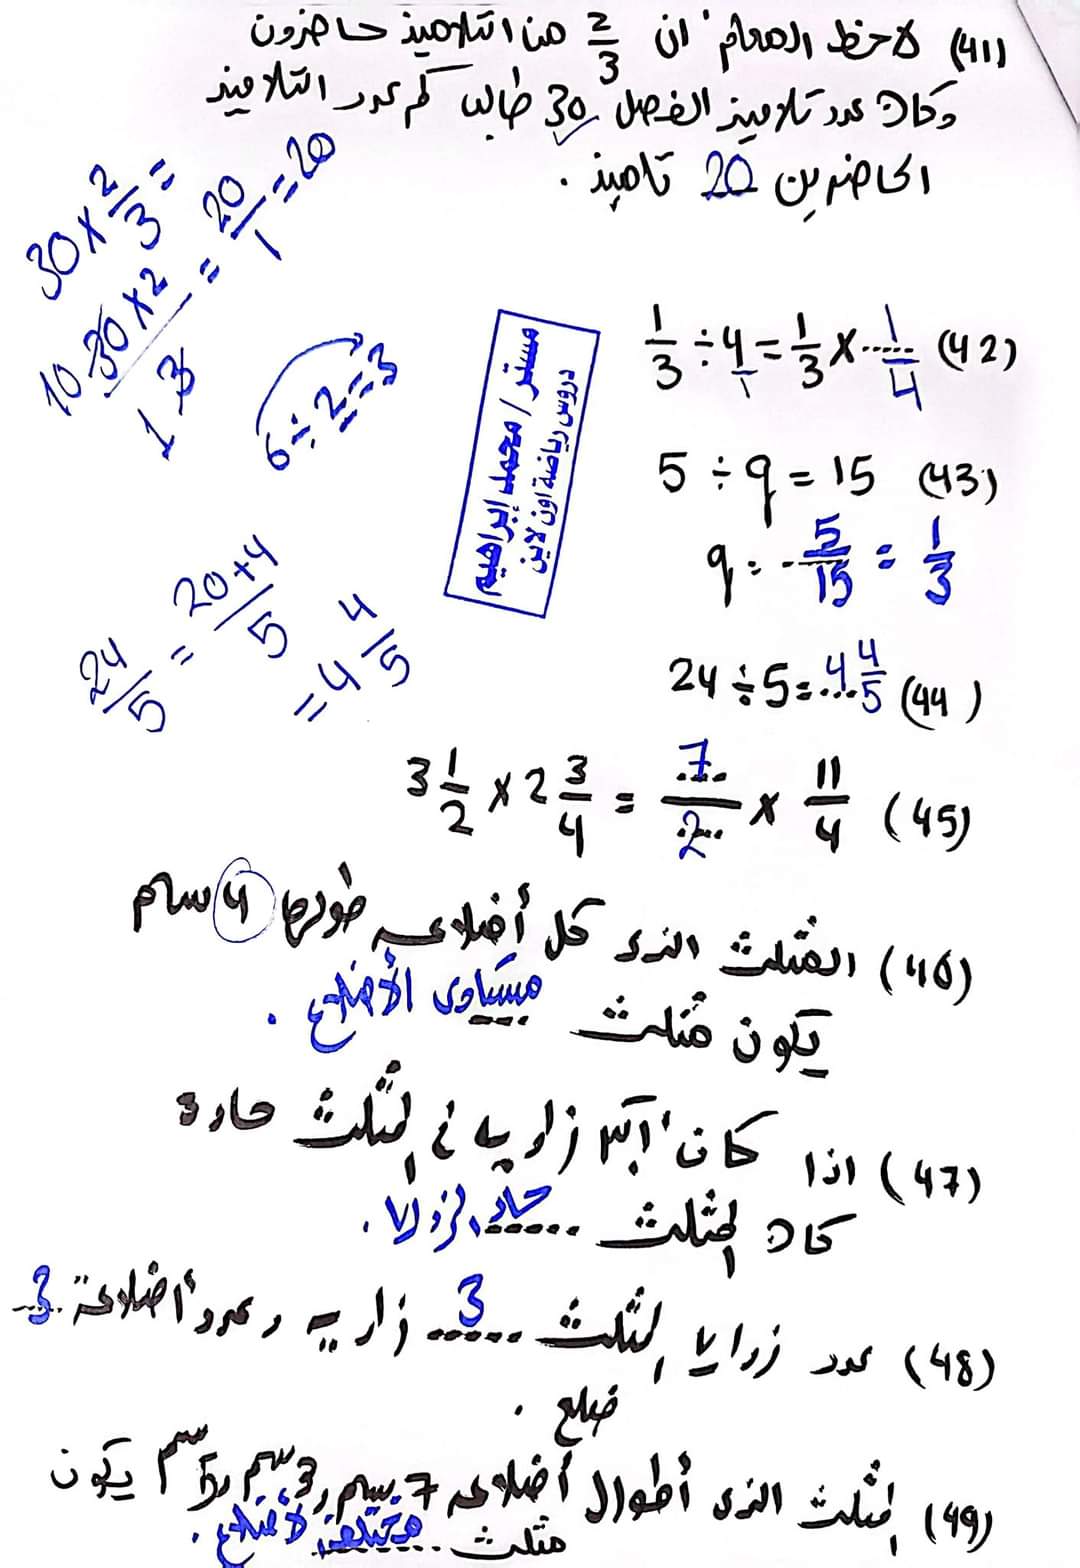 (41) لاحظ المعلم ان 2/3 من التلاميذ حاضرون
وكان عدد تلاميذ الفصل 30 طالب كم عدد التلاميذ
الحاضرين 20 تلميذ .
30 × 2/3 =
10 30 × 2 / 1 3 = 20/1 = 20
6 ÷ 2 = 3
مستر / محمد إبراهيم
دروس رياضة اون لاين
(42) 1/3 ÷ 4/1 = 1/3 × 1/4
(43) 5 ÷ q = 15
q = 5/15 = 1/3
(44) 24 ÷ 5 = 4 4/5
24/5 = 20+4/5
= 4 4/5
(45) 3 1/2 × 2 3/4 = 7/2 × 11/4
(46) المثلث الذى كل أضلاعه طولها 4 سم
يكون مثلث متساوى الأضلاع .
(47) اذا كان أكبر زاوية في المثلث حادة
كان المثلث حاد الزوايا .
(48) عدد زوايا المثلث 3 زاوية وعدد أضلاعة 3
ضلع .
(49) المثلث الذى أطوال أضلاعه 7 سم , 3 سم , 5 سم يكون
مثلث مختلف الأضلاع .